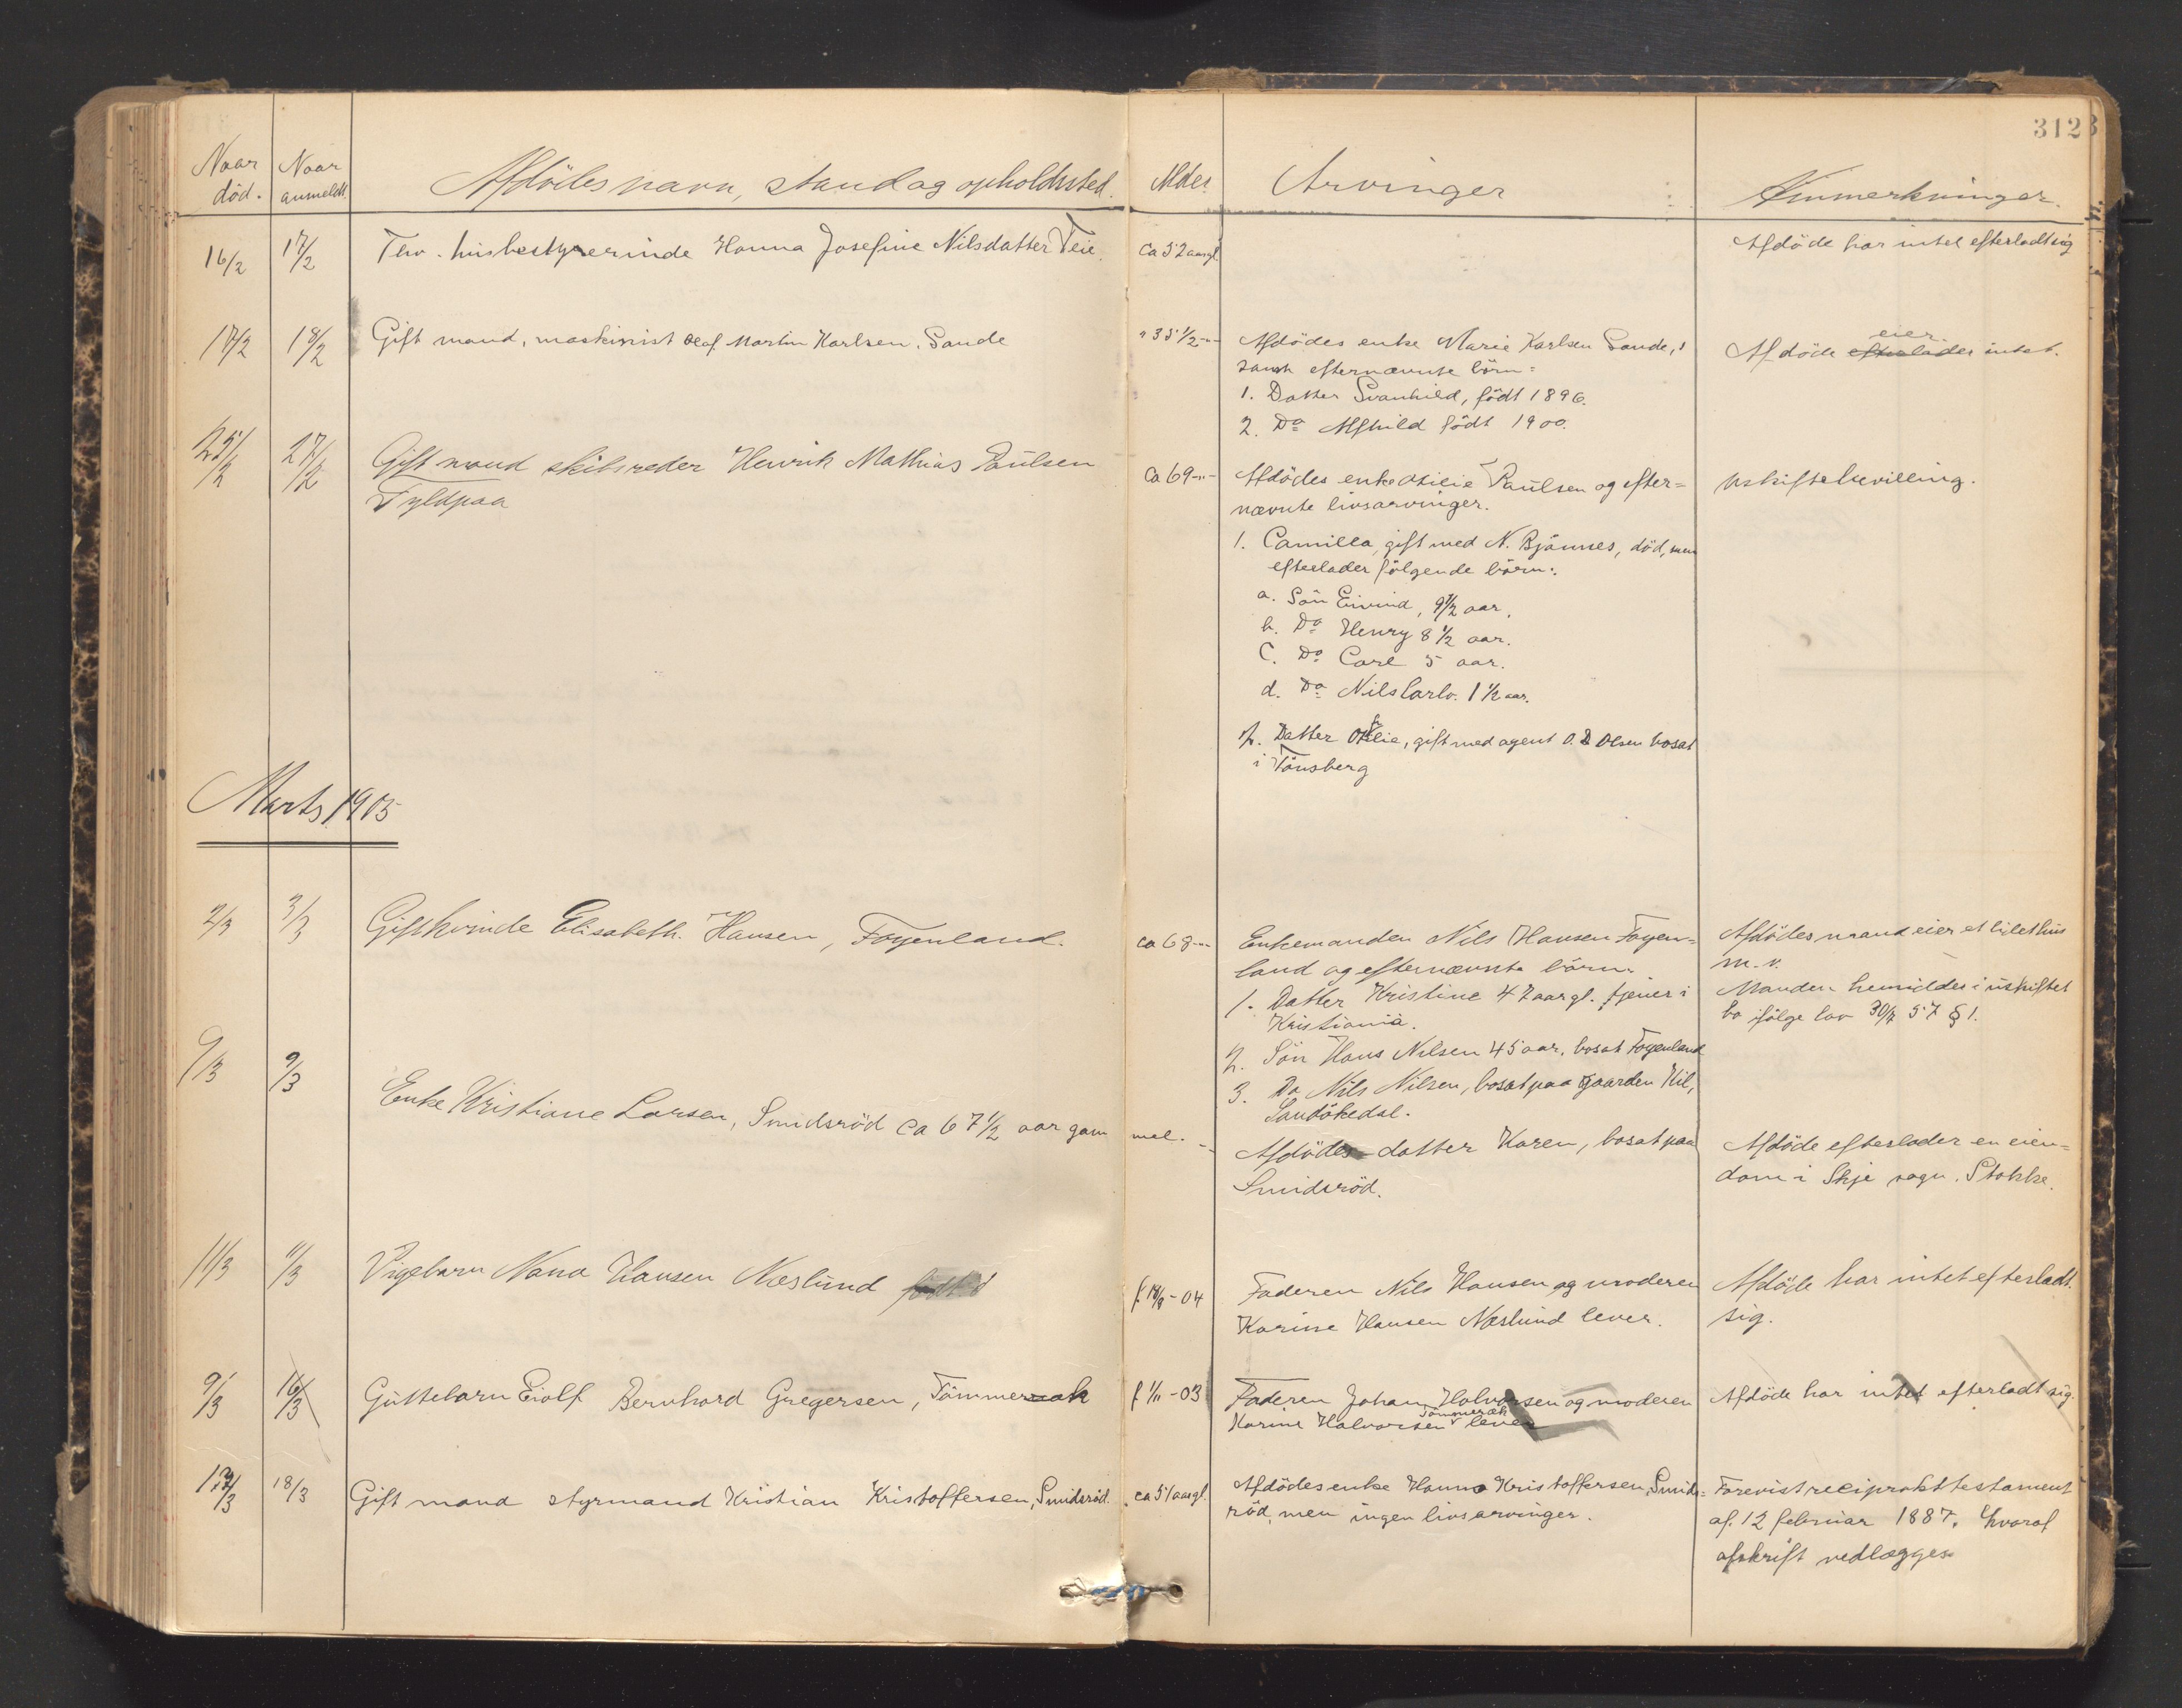 3123
Naar død. Naar anmeldt. Afdödes navn, stand og opholdssted. Alder. Arvinger Anmerkninger.
16/2 17/2 Fhv. husbestyrerinde Hanna Josefine Nilsdatter Teie. ca 52 aar gl. Afdöde har intet efterladt sig
17/2 18/2 Gift mand, maskinist Olaf Martin Karlsen, Sande " 35 1/2 -"- Afdödes enke Marie Karlsen Sande, Afdöde efterlader eier intet.
samt efternævnte börn:
1. Datter Svanhild, födt 1896.
2. Do Alfhild födt 1900.
25/2 27/2 Gift mand skibsreder Henrik Mathias Paulsen ca 69 -"- Afdödes enke Otilie Paulsen og efter= Uskiftebevilling.
Fyldpaa nævnte livsarvinger.
1. Camilla, gift med N. Bjönnes, död, men
efterlader fölgende börn:
a. Sön Eivind, 9 1/2 aar.
b. Do Henry 8 1/2 aar.
C. Do Carl 5 aar.
d. Do Nils Carlo. 1 1/2 aar.
2. Datter Otilie, gift med agent O. Olsen bosat
i Tönsberg
Marts 1905
2/3 3/3 Gift kvinde Elisabeth Hansen, Foyenland. ca 68 -"- Enkemanden Nils Hansen Foyen= Afdödes mand eier et lidet hus
land og efternævnte börn: m. v.
1. Datter Kristine 47 aar gl. tjener i Manden hensidder i uskiftet
Kristiania. bo ifölge lov 30/7 57 § 1.
2. Sön Hans Nilsen 45 aar, bosat Foyenland
3. Do Nils Nilsen, bosat paa gaarden Kil,
Sandökedal.
9/3 9/3 Enke Kristiane Larsen, Smidsröd ca 67 1/2 aar gammel. Afdödes datter Karen, bosat paa Afdöde efterlader en eien=
Smidsröd. dom i Skje sogn. Stokke.
11/3 11/3 Pigebarn Nana Hansen Næslund födt f. 18/9 - 04 Faderen Nils Hansen og moderen Afdöde har intet efterladt
Karine Hansen Næslund lever. sig.
9/3 16/3 Guttebarn Eiolf Bernhard Gregersen, Tömmerak f. 1/11 - 03 Faderen Johan Halvorsen og moderen Afdöde har intet efterladt sig.
Karine Halvorsen Tömmerak lever
13/3 18/3 Gift mand styrmand Kristian Kristoffersen, Smidsröd. ca 51 aar gl. Afdödes enke Hanna Kristoffersen, Smids= Forevist reciprokt testament
röd, men ingen livsarvinger. af. 12 februar 1887. hvoraf
afskrift vedlægges